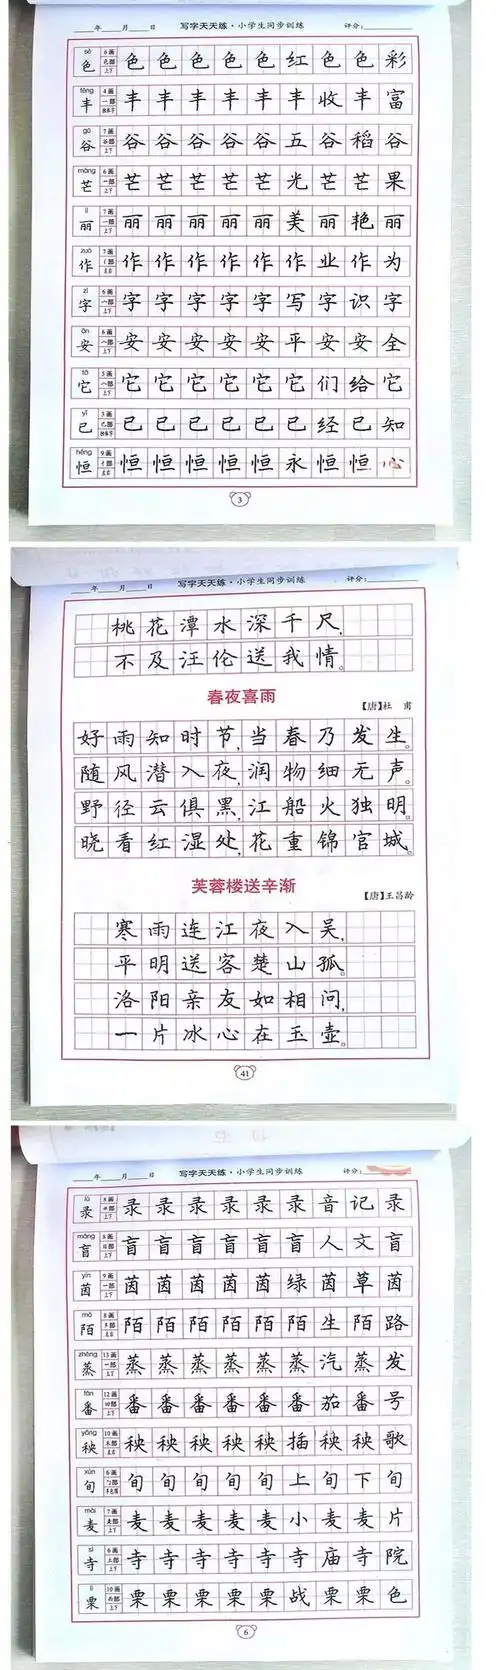 ____年____月____日 写字天天练·小学生同步训练 评分:______
sè 6画
色 色部 色 色 色 色 色 红 色 色 彩
上下
fēng 4画
丰 一部 丰 丰 丰 丰 丰 丰 收 丰 富
独体字
gǔ 7画
谷 谷部 谷 谷 谷 谷 谷 五 谷 稻 谷
上下
máng 6画
芒 艹部 芒 芒 芒 芒 芒 光 芒 芒 果
上下
lì 7画
丽 一部 丽 丽 丽 丽 丽 美 丽 艳 丽
上下
zuò 7画
作 亻部 作 作 作 作 作 作 业 作 为
左右
zì 6画
字 宀部 字 字 字 字 字 写 字 识 字
上下
ān 6画
安 宀部 安 安 安 安 安 平 安 安 全
上下
tā 5画
它 宀部 它 它 它 它 它 它 们 给 它
上下
yǐ 3画
已 已部 已 已 已 已 已 已 经 已 知
独体字
héng 9画
恒 忄部 恒 恒 恒 恒 恒 永 恒 恒 心
左右
3
____年____月____日 写字天天练·小学生同步训练 评分:______
桃花潭水深千尺,
不及汪伦送我情。
春夜喜雨
【唐】杜 甫
好雨知时节,当春乃发生。
随风潜入夜,润物细无声。
野径云俱黑,江船火独明。
晓看红湿处,花重锦官城。
芙蓉楼送辛渐
【唐】王昌龄
寒雨连江夜入吴,
平明送客楚山孤。
洛阳亲友如相问,
一片冰心在玉壶。
41
____年____月____日 写字天天练·小学生同步训练 评分:
lù 8画
录 录 录 录 录 录 录 音 记 录
上下
máng 8画
盲 目部 盲 盲 盲 盲 盲 盲 人 文 盲
上下
yīn 9画
茵 艹部 茵 茵 茵 茵 茵 绿 茵 草 茵
上下
mò 8画
陌 阝部 陌 陌 陌 陌 陌 陌 生 陌 路
左右
zhēng 13画
蒸 艹部 蒸 蒸 蒸 蒸 蒸 蒸 汽 蒸 发
上下
fān 12画
番 田部 番 番 番 番 番 番 茄 番 号
上下
yāng 10画
秧 禾部 秧 秧 秧 秧 秧 插 秧 秧 歌
左右
xún 6画
旬 勹部 旬 旬 旬 旬 旬 上 旬 下 旬
半包围
mài 7画
麦 麦部 麦 麦 麦 麦 麦 小 麦 麦 片
上下
sì 6画
寺 土部 寺 寺 寺 寺 寺 寺 庙 寺 院
上下
lì 10画
栗 西部 栗 栗 栗 栗 栗 战 栗 栗 色
上下
6